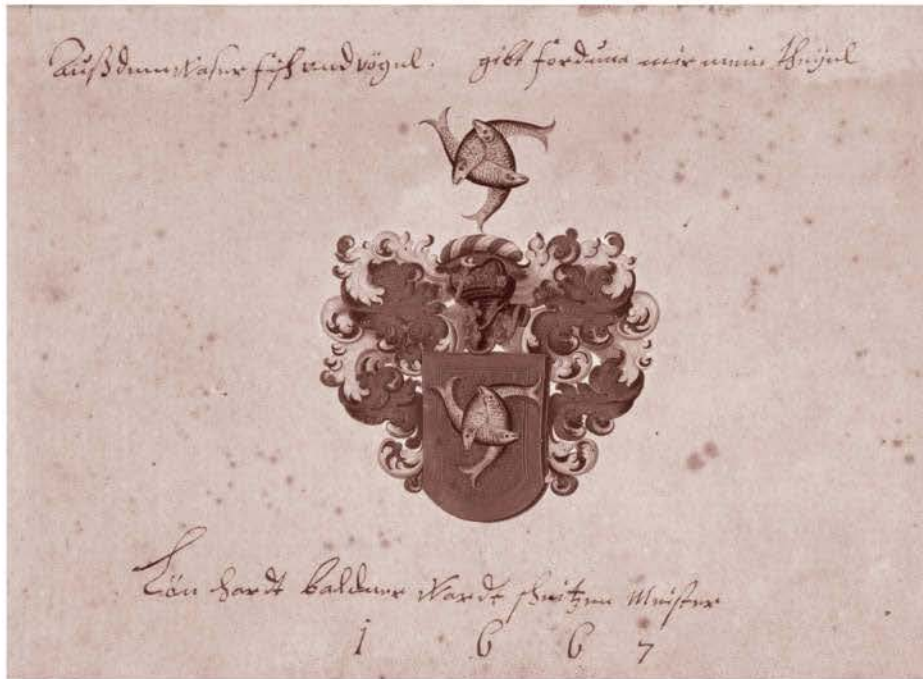 Auß dem Waser fisch und vögel. gibt forduna mir mein theyel
Lönhardt baldner Wardt schitzen Meister
1 6 6 7